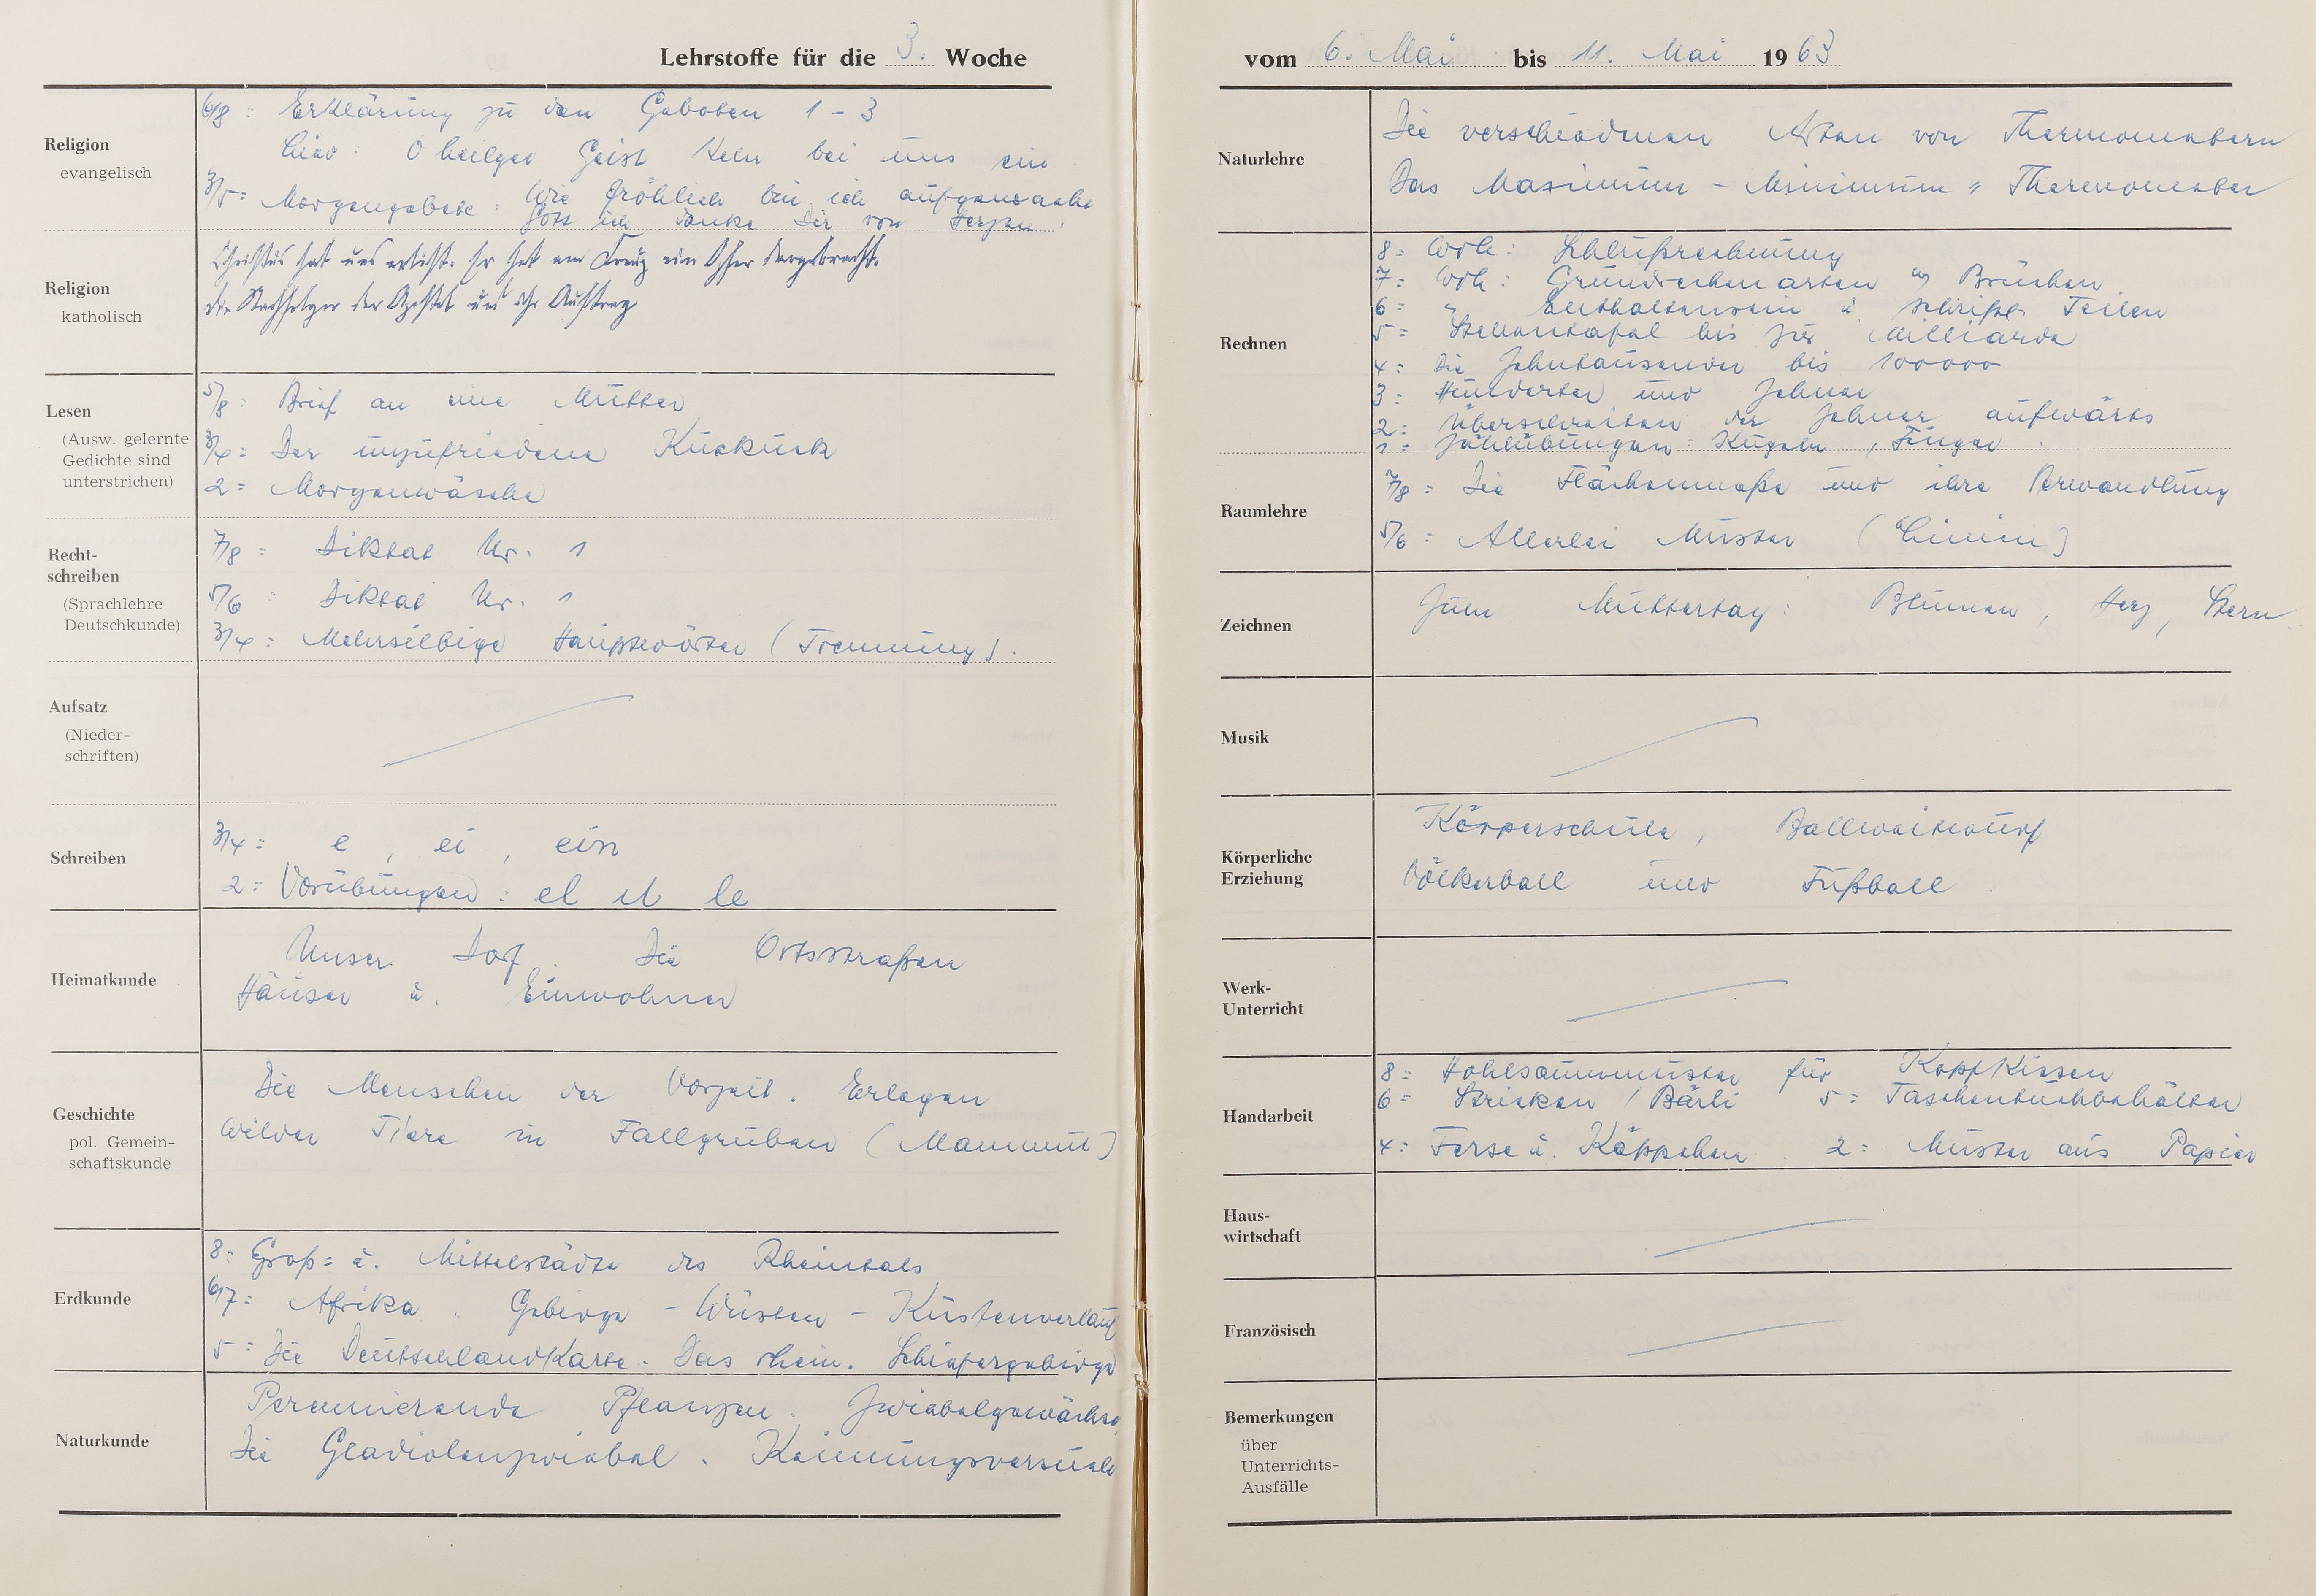 Lehrstoffe für die 3. Woche
Religion
evangelisch
6/8: Erklärung zu den Geboten 1 – 3
Lied: O heilger Geist kehr bei uns ein
3/5: Morgengebete: Wie fröhlich bin ich aufgewacht
Gott ich danke Dir von Herzen.
Religion
katholisch
Christus hat uns erlöst. Er hat am Kreuz ein Opfer dargebracht.
die Nachfolger der Apostel und ihr Auftrag
Lesen
(Ausw. gelernte
Gedichte sind
unterstrichen)
5/8: Brief an eine Mutter
3/4: Der unzufriedene Kuckuck
2: Morgenwäsche
Recht-
schreiben
(Sprachlehre
Deutschkunde)
7/8: Diktat Nr. 1
5/6: Diktat Nr. 1
3/4: Mehrsilbige Hauptwörter (Trennung).
Aufsatz
(Nieder-
schriften)
Schreiben
3/4: e, ei, ein
2: Vorübungen: el le
Heimatkunde
Unser Dorf. Die Ortsstraßen
Häuser u. Einwohner
Geschichte
pol. Gemein-
schaftskunde
Die Menschen der Vorzeit. Erlegen
wilder Tiere in Fallgruben (Mammut)
Erdkunde
8: Groß= u. Mittelstädte des Rheintals
6/7: Afrika. Gebirge – Wüsten – Küstenverlauf
5: Die Deutschlandkarte. Das rhein. Schiefergebirge
Naturkunde
Perennierende Pflanzen. Zwiebelgewächse
Die Gladiolenzwiebel. Keimungsversuche
vom 6. Mai bis 11. Mai 1963
Naturlehre
Die verschiedenen Arten von Thermometern
Das Maximum – Minimum = Thermometer
Rechnen
8: Wdh: Schlußrechnung
7: Wdh: Grundrechenarten Brüchen
6: " Enthaltensein u. schriftl. Teilen
5: Stellentafel bis zur Milliarde
4: Die Zehntausender bis 100000
3: Hunderter und Zehner
2: Überschreiten der Zehner aufwärts
1: Zählübungen: Kugeln, Finger.
Raumlehre
7/8: Die Flächenmaße und ihre Verwandlung
5/6: Allerlei Muster (Linien)
Zeichnen
Zum Muttertag: Blumen, Herz, Stern.
Musik
Körperliche
Erziehung
Körperschule, Ballweitwurf
Völkerball und Fußball
Werk-
Unterricht
Handarbeit
8: Hohlsaummuster für Kopfkissen
6: Stricken / Bärli 5: Taschentuchbehälter
4: Ferse u. Käppchen. 2: Muster aus Papier
Haus-
wirtschaft
Französisch
Bemerkungen
über
Unterrichts-
Ausfälle